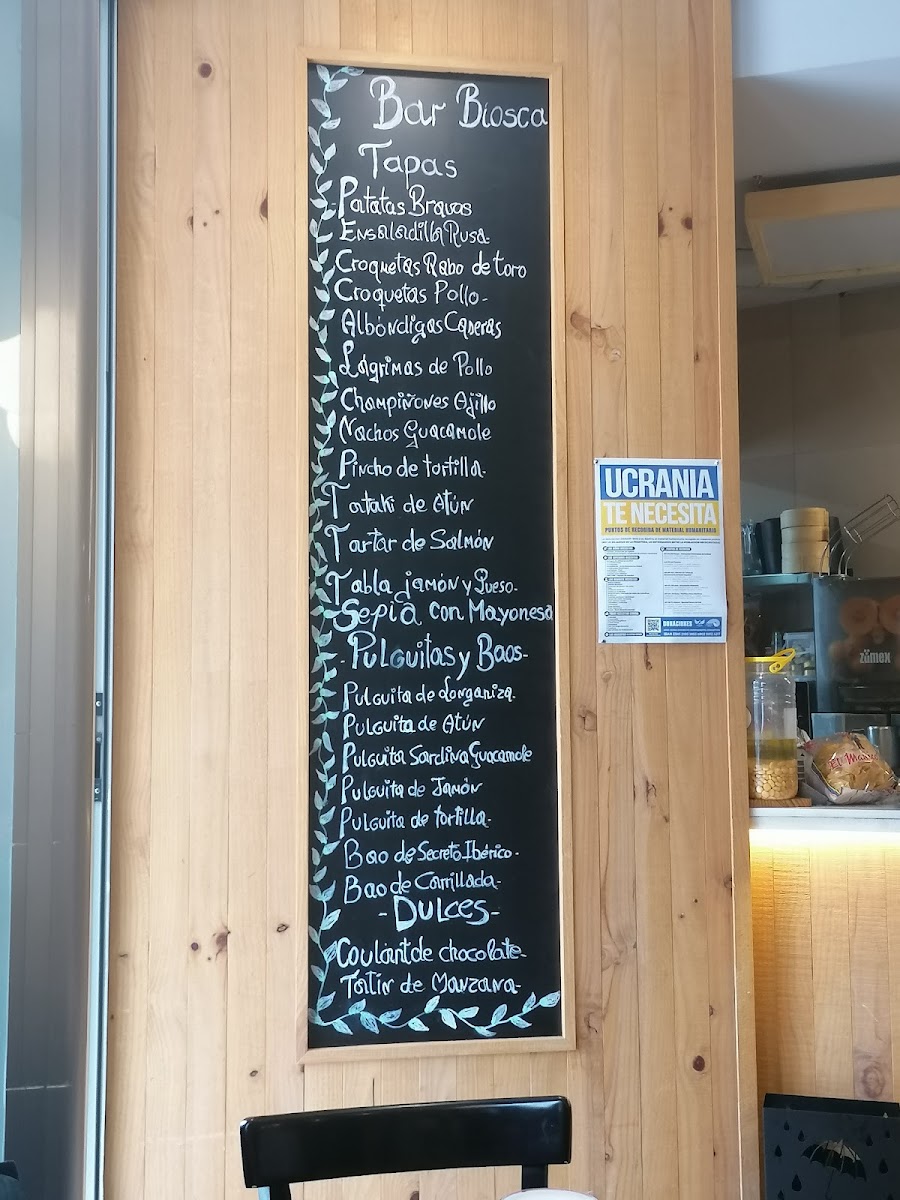 Bar Biosca
Tapas
-Patatas Bravas
Ensaladilla Rusa-
Croquetas Rabo de toro
Croquetas Pollo-
Albóndigas Caseras
Lágrimas de Pollo
Champiñones Ajillo
Nachos Guacamole
Pincho de tortilla-
Tataki de Atún
Tartar de Salmón
Tabla jamón y Queso-
-Sepia con Mayonesa
-Pulguitas y Baos-
Pulguita de Longaniza-
Pulguita de Atún
Pulguita Sardina Guacamole
Pulguita de Jamón
Pulguita de tortilla-
Bao de Secreto Ibérico-
Bao de Carrillada-
-DULCES-
Coulant de chocolate-
Tatin de Manzana-
UCRANIA
TE NECESITA
PUNTOS DE RECOGIDA DE MATERIAL HUMANITARIO
DONACIONES
zumex